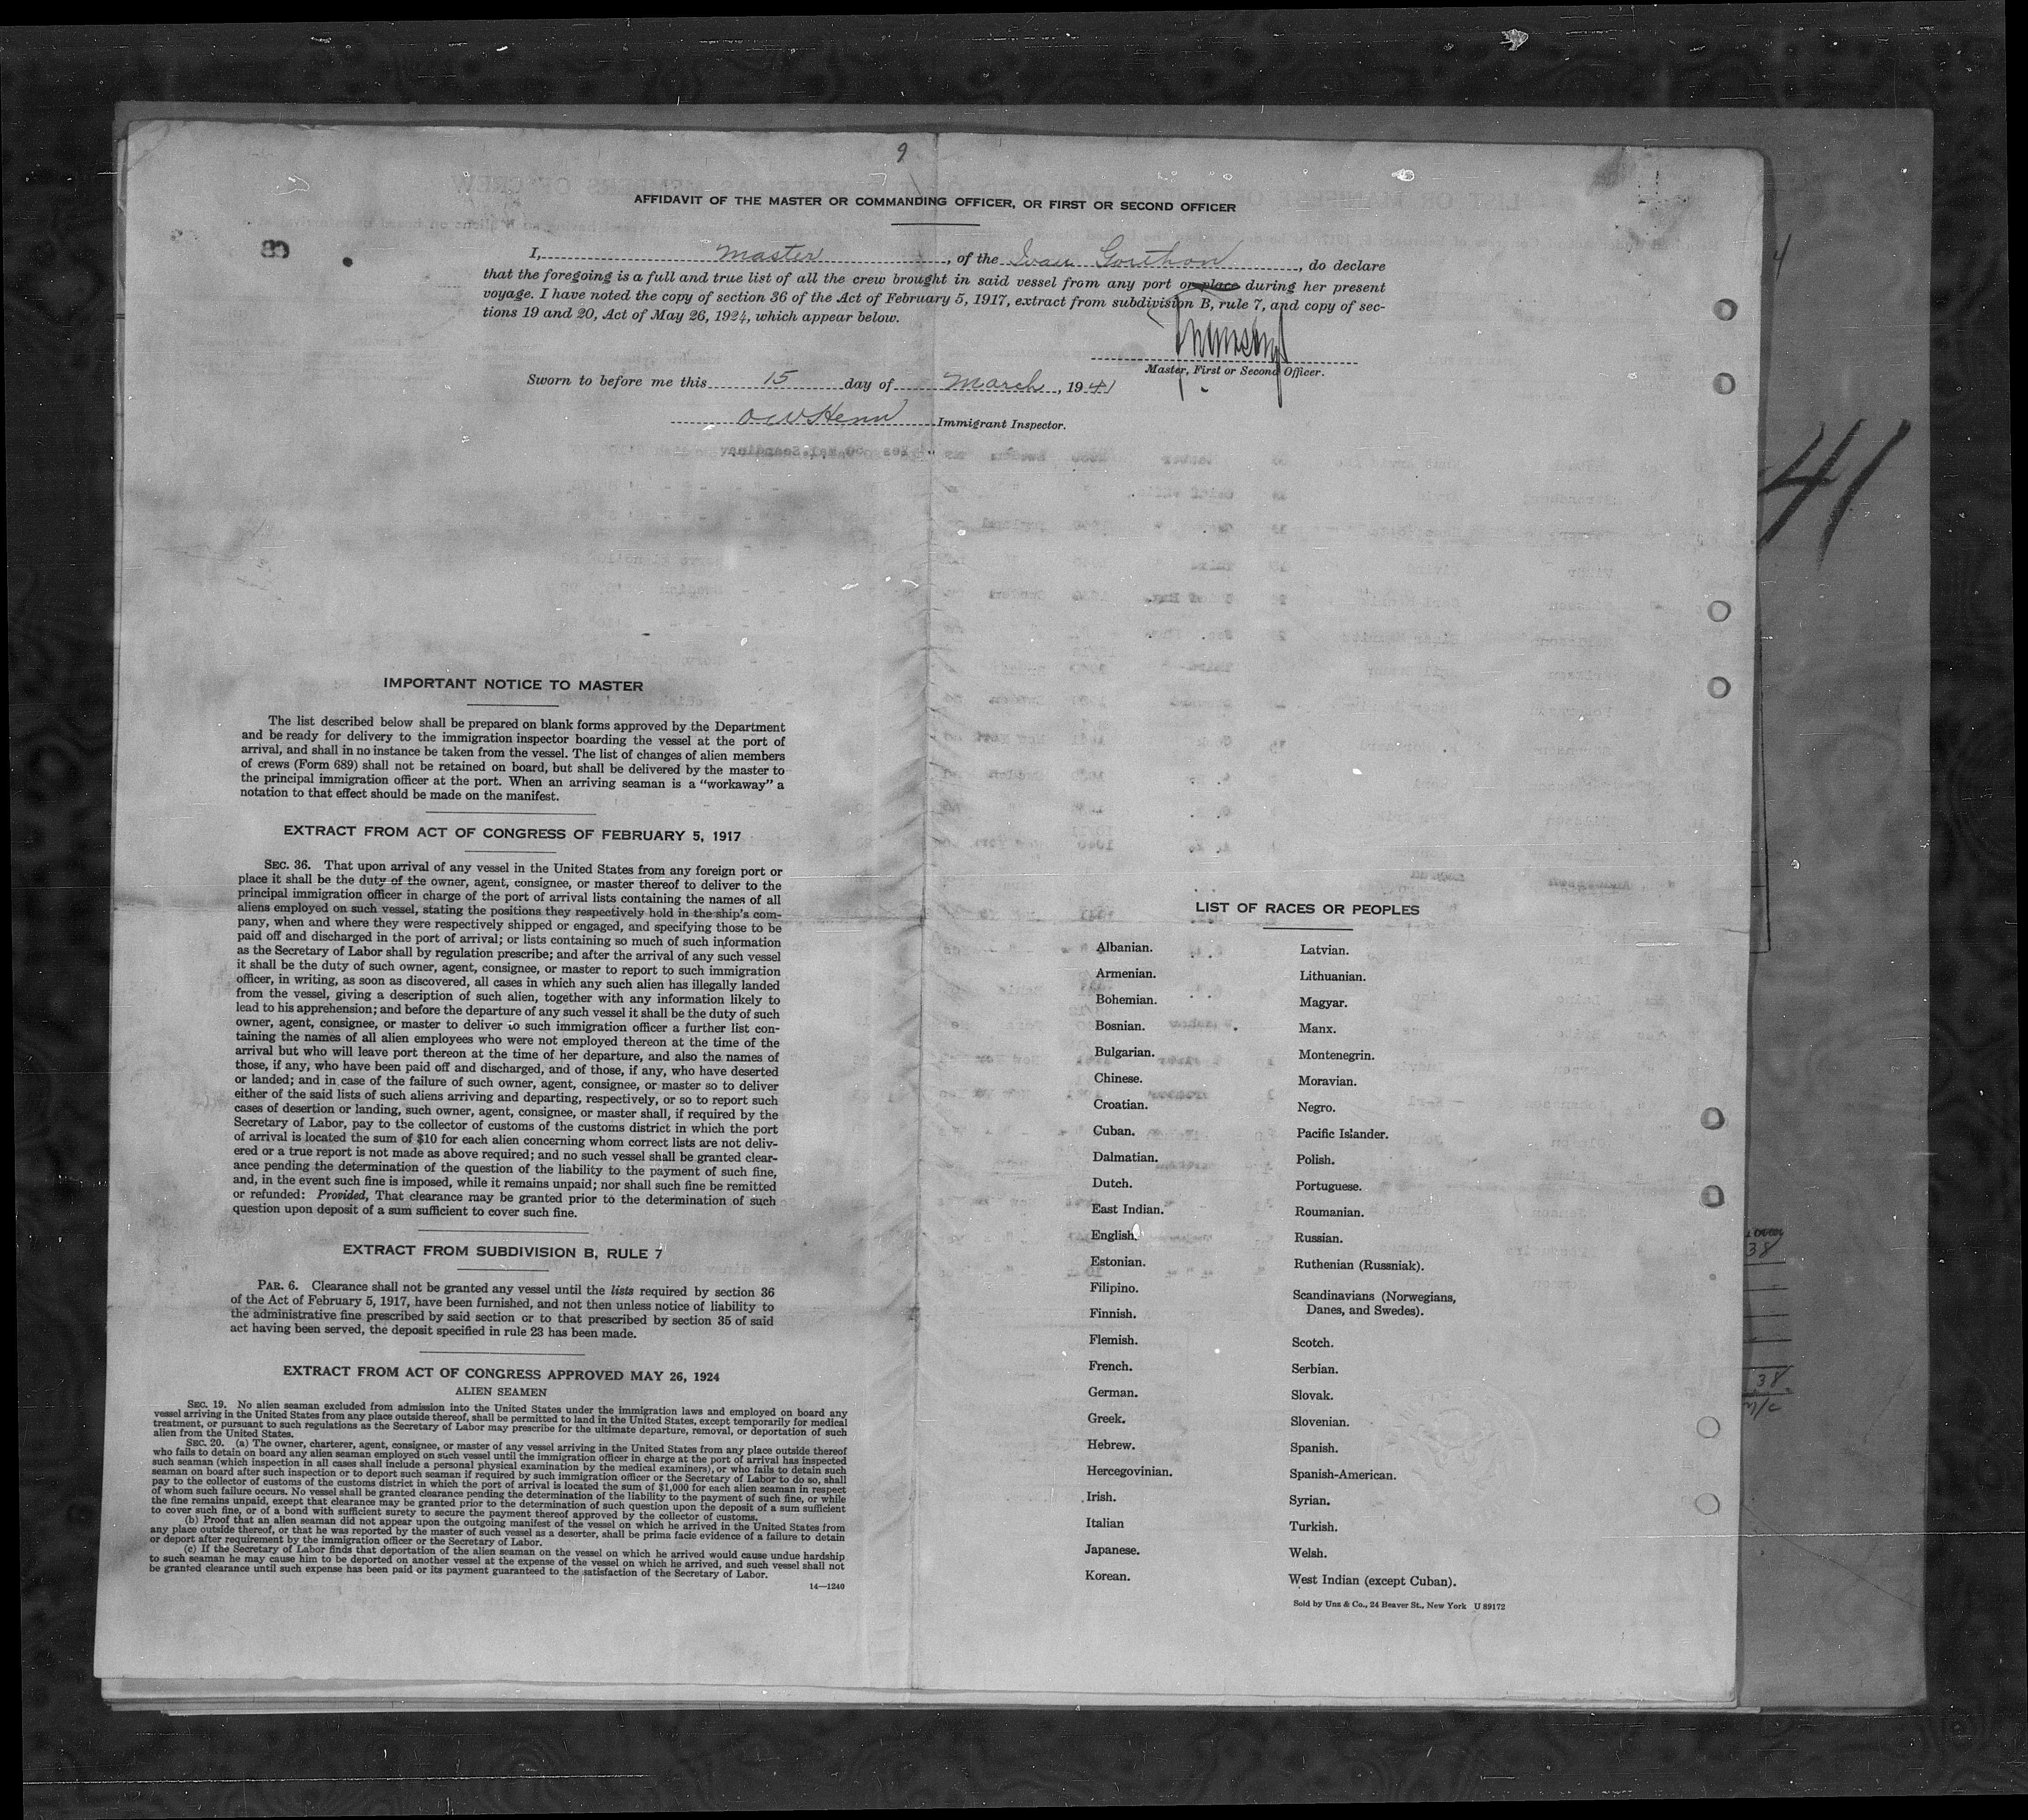 9
AFFIDAVIT OF THE MASTER OR COMMANDING OFFICER, OR FIRST OR SECOND OFFICER
I, Master, of the Ivan Gorthon, do declare
that the foregoing is a full and true list of all the crew brought in said vessel from any port or place during her present
voyage. I have noted the copy of section 36 of the Act of February 5, 1917, extract from subdivision B, rule 7, and copy of sec-
tions 19 and 20, Act of May 26, 1924, which appear below.
Master, First or Second Officer.
Sworn to before me this 15 day of March, 1941
Immigrant Inspector.
41
IMPORTANT NOTICE TO MASTER
The list described below shall be prepared on blank forms approved by the Department
and be ready for delivery to the immigration inspector boarding the vessel at the port of
arrival, and shall in no instance be taken from the vessel. The list of changes of alien members
of crews (Form 689) shall not be retained on board, but shall be delivered by the master to
the principal immigration officer at the port. When an arriving seaman is a "workaway" a
notation to that effect should be made on the manifest.
EXTRACT FROM ACT OF CONGRESS OF FEBRUARY 5, 1917
SEC. 36. That upon arrival of any vessel in the United States from any foreign port or
place it shall be the duty of the owner, agent, consignee, or master thereof to deliver to the
principal immigration officer in charge of the port of arrival lists containing the names of all
aliens employed on such vessel, stating the positions they respectively hold in the ship's com-
pany, when and where they were respectively shipped or engaged, and specifying those to be
paid off and discharged in the port of arrival; or lists containing so much of such information
as the Secretary of Labor shall by regulation prescribe; and after the arrival of any such vessel
it shall be the duty of such owner, agent, consignee, or master to report to such immigration
officer, in writing, as soon as discovered, all cases in which any such alien has illegally landed
from the vessel, giving a description of such alien, together with any information likely to
lead to his apprehension; and before the departure of any such vessel it shall be the duty of such
owner, agent, consignee, or master to deliver to such immigration officer a further list con-
taining the names of all alien employees who were not employed thereon at the time of the
arrival but who will leave port thereon at the time of her departure, and also the names of
those, if any, who have been paid off and discharged, and of those, if any, who have deserted
or landed; and in case of the failure of such owner, agent, consignee, or master so to deliver
either of the said lists of such aliens arriving and departing, respectively, or so to report such
cases of desertion or landing, such owner, agent, consignee, or master shall, if required by the
Secretary of Labor, pay to the collector of customs of the customs district in which the port
of arrival is located the sum of $10 for each alien concerning whom correct lists are not deliv-
ered or a true report is not made as above required; and no such vessel shall be granted clear-
ance pending the determination of the question of the liability to the payment of such fine,
and, in the event such fine is imposed, while it remains unpaid; nor shall such fine be remitted
or refunded: Provided, That clearance may be granted prior to the determination of such
question upon deposit of a sum sufficient to cover such fine.
EXTRACT FROM SUBDIVISION B, RULE 7
PAR. 6. Clearance shall not be granted any vessel until the lists required by section 36
of the Act of February 5, 1917, have been furnished, and not then unless notice of liability to
the administrative fine prescribed by said section or to that prescribed by section 35 of said
act having been served, the deposit specified in rule 23 has been made.
EXTRACT FROM ACT OF CONGRESS APPROVED MAY 26, 1924
ALIEN SEAMEN
SEC. 19. No alien seaman excluded from admission into the United States under the immigration laws and employed on board any
vessel arriving in the United States from any place outside thereof, shall be permitted to land in the United States, except temporarily for medical
treatment, or pursuant to such regulations as the Secretary of Labor may prescribe for the ultimate departure, removal, or deportation of such
alien from the United States.
SEC. 20. (a) The owner, charterer, agent, consignee, or master of any vessel arriving in the United States from any place outside thereof
who fails to detain on board any alien seaman employed on such vessel until the immigration officer in charge at the port of arrival has inspected
such seaman (which inspection in all cases shall include a personal physical examination by the medical examiners), or who fails to detain such
seaman on board after such inspection or to deport such seaman if required by such immigration officer or the Secretary of Labor to do so, shall
pay to the collector of customs of the customs district in which the port of arrival is located the sum of $1,000 for each alien seaman in respect
of whom such failure occurs. No vessel shall be granted clearance pending the determination of the liability to the payment of such fine, or while
the fine remains unpaid, except that clearance may be granted prior to the determination of such question upon the deposit of a sum sufficient
to cover such fine, or of a bond with sufficient surety to secure the payment thereof approved by the collector of customs.
(b) Proof that an alien seaman did not appear upon the outgoing manifest of the vessel on which he arrived in the United States from
any place outside thereof, or that he was reported by the master of such vessel as a deserter, shall be prima facie evidence of a failure to detain
or deport after requirement by the immigration officer or the Secretary of Labor.
(c) If the Secretary of Labor finds that deportation of the alien seaman on the vessel on which he arrived would cause undue hardship
to such seaman he may cause him to be deported on another vessel at the expense of the vessel on which he arrived, and such vessel shall not
be granted clearance until such expense has been paid or its payment guaranteed to the satisfaction of the Secretary of Labor.
14—1240
LIST OF RACES OR PEOPLES
Albanian.
Armenian.
Bohemian.
Bosnian.
Bulgarian.
Chinese.
Croatian.
Cuban.
Dalmatian.
Dutch.
East Indian.
English.
Estonian.
Filipino.
Finnish.
Flemish.
French.
German.
Greek.
Hebrew.
Hercegovinian.
Irish.
Italian
Japanese.
Korean.
Latvian.
Lithuanian.
Magyar.
Manx.
Montenegrin.
Moravian.
Negro.
Pacific Islander.
Polish.
Portuguese.
Roumanian.
Russian.
Ruthenian (Russniak).
Scandinavians (Norwegians,
Danes, and Swedes).
Scotch.
Serbian.
Slovak.
Slovenian.
Spanish.
Spanish-American.
Syrian.
Turkish.
Welsh.
West Indian (except Cuban).
Sold by Unz & Co., 24 Beaver St., New York U 89172
38
38